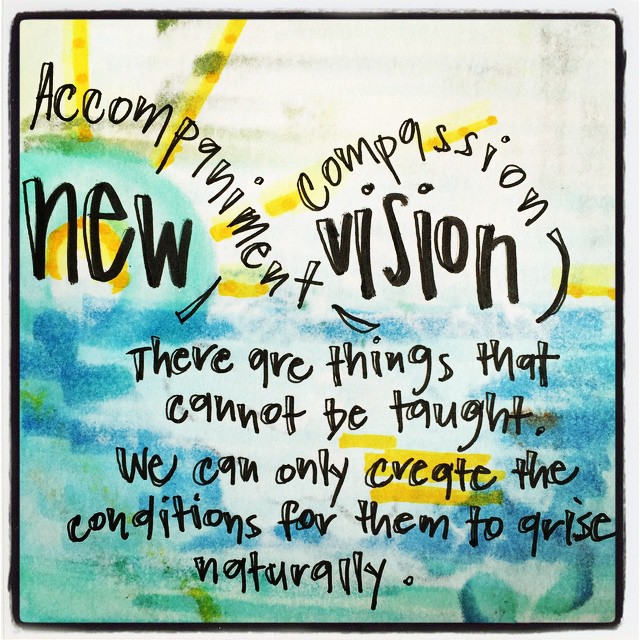 Accompaniment,
compassion,
new vision,
There are things that
cannot be taught.
We can only create the
conditions for them to arise
naturally.